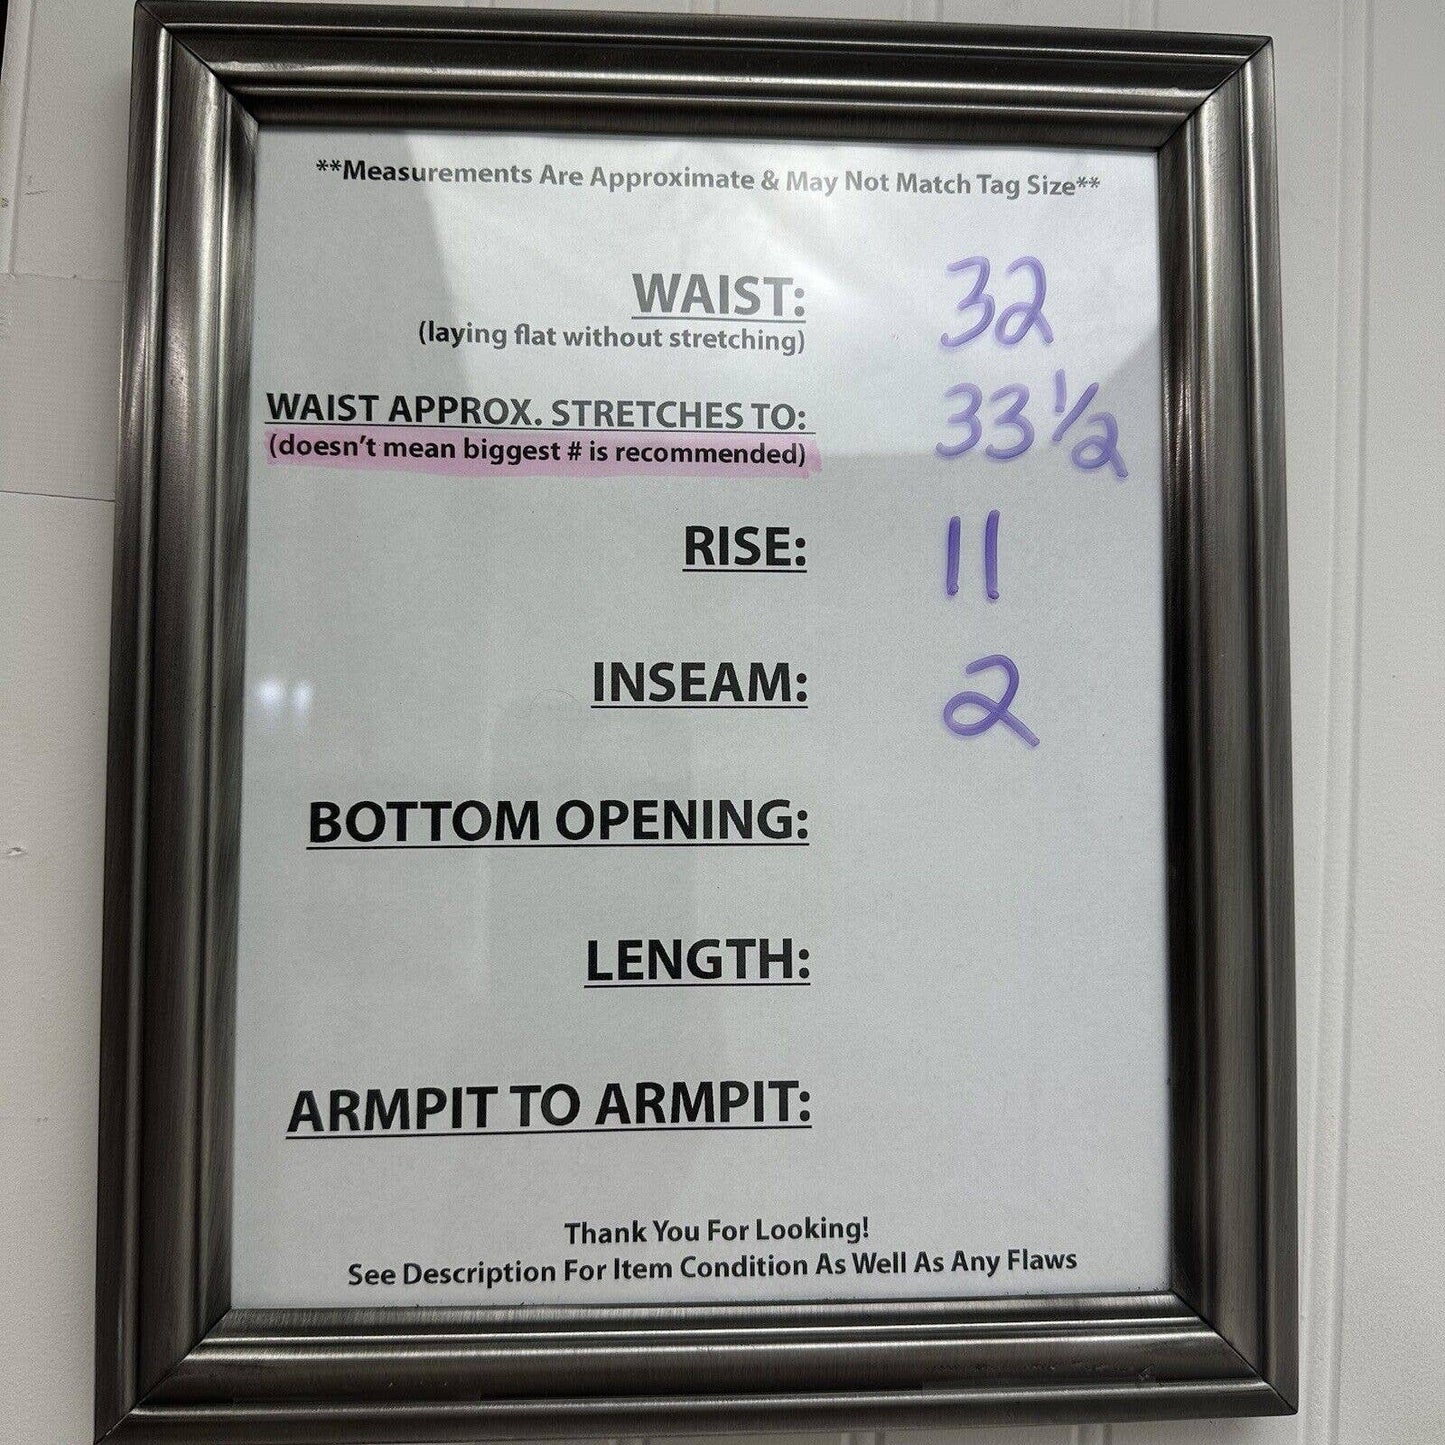 **Measurements Are Approximate & May Not Match Tag Size**
WAIST: 32
(laying flat without stretching)
WAIST APPROX. STRETCHES TO: 33 1/2
(doesn't mean biggest # is recommended)
RISE: 11
INSEAM: 2
BOTTOM OPENING:
LENGTH:
ARMPIT TO ARMPIT:
Thank You For Looking!
See Description For Item Condition As Well As Any Flaws